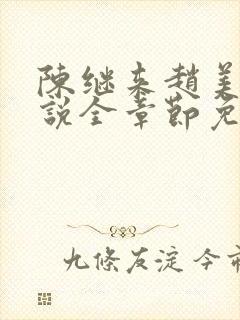 陳继来趙美
說全章節免
九條友淀今市